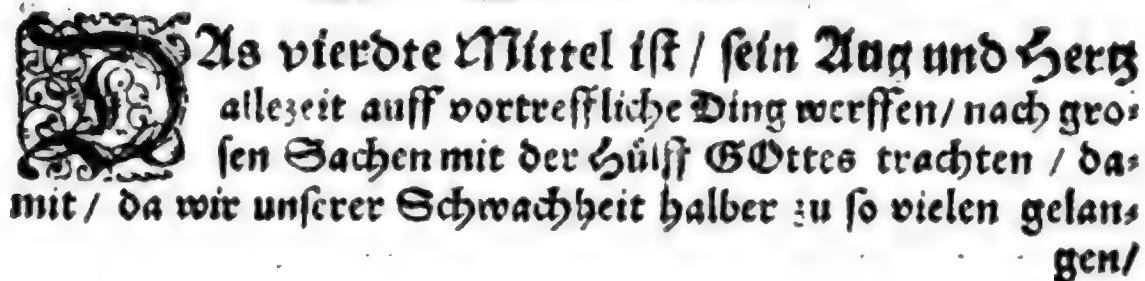 DAs vierdte Mittel ist / sein Aug und Hertz
allezeit auff vortreffliche Ding werffen/ nach gros-
sen Sachen mit der Hülff GOttes trachten / da-
mit / da wir unserer Schwachheit halber zu so vielen gelan-
gen/